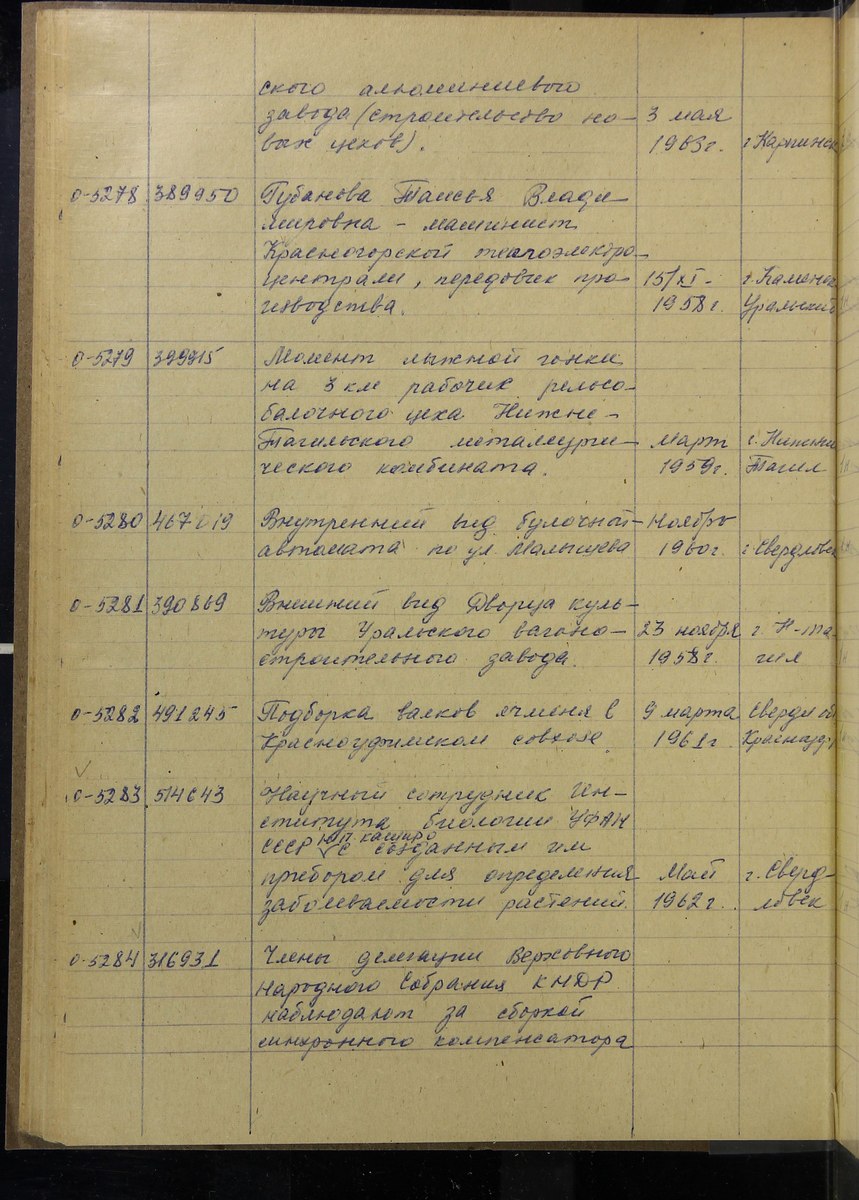 ского алюминиевого
завода (строительство но- 3 мая
вых цехов). 1963г. г. Карпинск
0-5278 389950 Губанова Таисья Влади-
мировна - машинист
Красногорской теплоэлектро-
централи, передовик про- 15/XI- г. Каменск
изводства. 1958г. Уральский
0-5279 399915 Момент лыжной гонки
на 3 км рабочих рельсо-
балочного цеха Нижне-
Тагильского металлурги- Март г. Нижний
ческого комбината. 1959г. Тагил
0-5280 467019 Внутренний вид булочной- Ноябрь
автомата по ул. Малышева 1960г. г. Свердловск
0-5281 390869 Внешний вид Дворца куль-
туры Уральского вагоно- 23 ноября г. Н-Та-
строительного завода. 1958г. гил
0-5282 491245 Подборка валков ячменя в 9 марта Свердл об
Красноуфимском совхозе. 1961г. Красноуф
0-5283 514643 Научный сотрудник Ин-
ститута биологии УФАН
СССР Ю.П. Каширо с созданным им
прибором для определения Май г. Сверд-
заболеваемости растений. 1962г. ловск
0-5284 316931 Члены делегации Верховного
Народного Собрания КНДР
наблюдают за сборкой
синхронного компенсатора